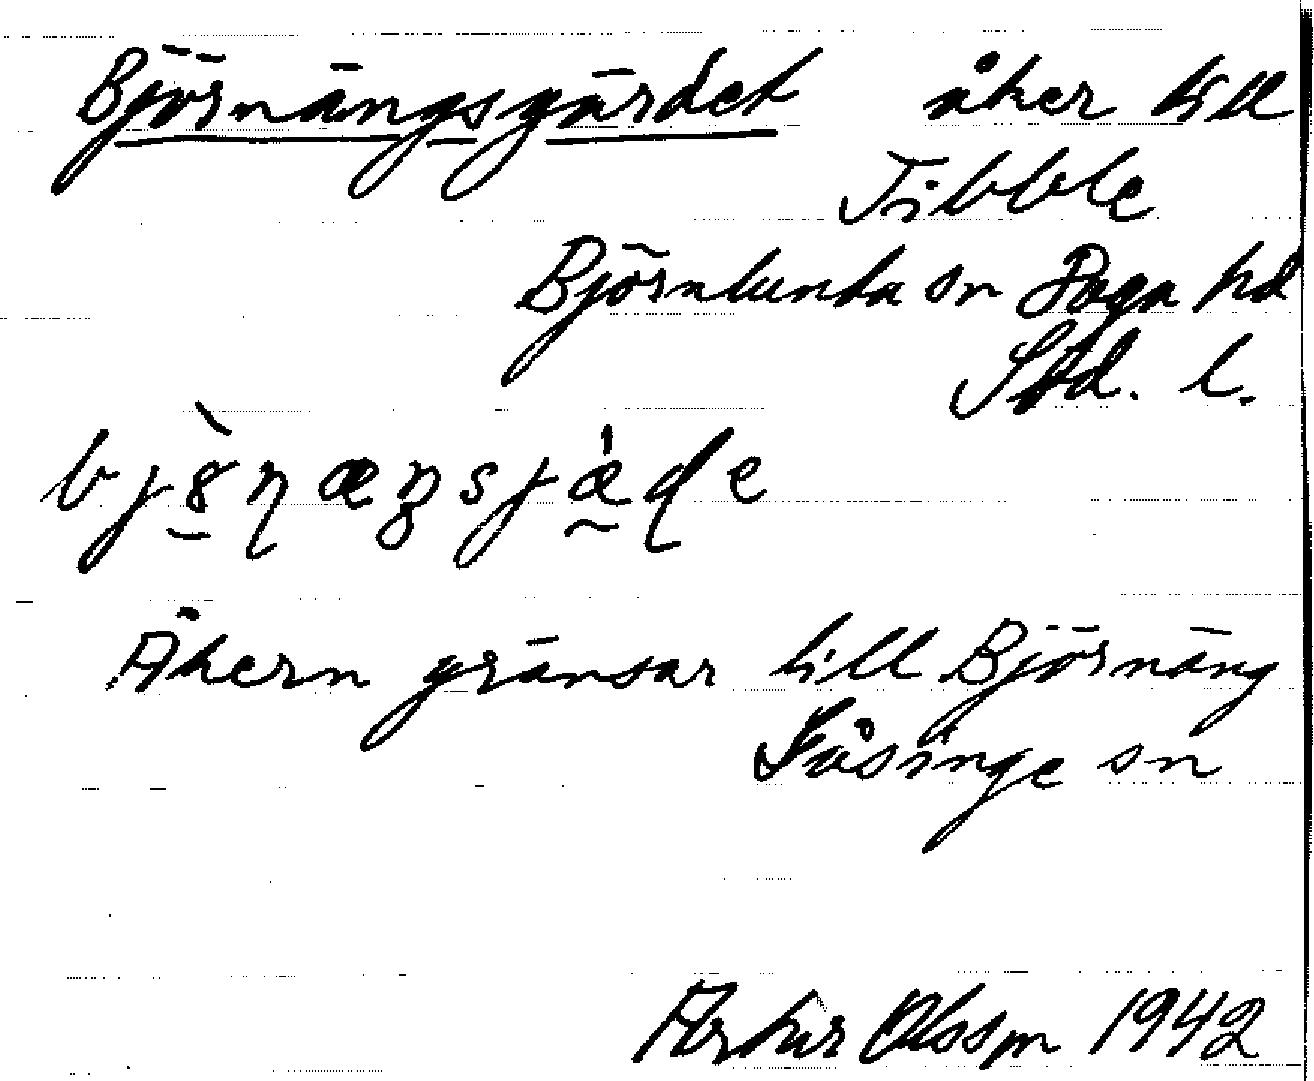 Björnängsgärdet åker till
Tibble
Björnlunda sn Daga hd
Sdd. l.
Åkern gränsar till Björnäng
Gåsinge sn
Artur Olsson 1942